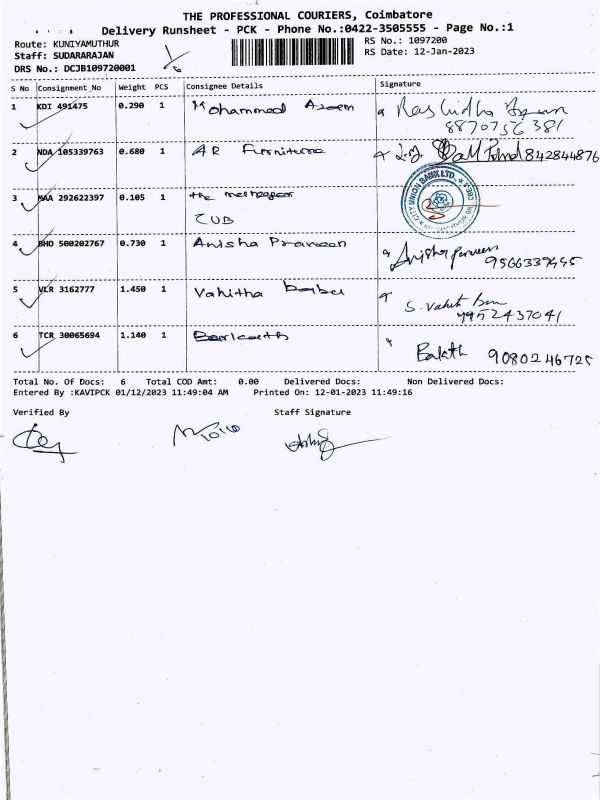 THE PROFESSIONAL COURIERS, Coimbatore
Delivery Runsheet - PCK - Phone No.:0422-3505555 - Page No.:1
Route: KUNIYAMUTHUR
RS No.: 1097200
Staff: SUDARARAJAN
RS Date: 12-Jan-2023
DRS No.: DCJB109720001
S No Consignment_No Weight PCS Consignee Details Signature
1 KDI 491475 0.290 1 Mohammed Azeem
8870756381
2 NDA 105339763 0.680 1 AR Furniture
842844876
3 MAA 292622397 0.105 1 the manager
CUB
CITY UNION BANK LTD.
4 BHO 500202767 0.730 1 Anisha Praveen Anisha parveen
9566339445
5 VLR 3162777 1.450 1 Vahitha Babu
9952437041
6 TCR 30065694 1.140 1
9080246725
Total No. Of Docs: 6 Total COD Amt: 0.00 Delivered Docs: Non Delivered Docs:
Entered By :KAVIPCK 01/12/2023 11:49:04 AM Printed On: 12-01-2023 11:49:16
Verified By Staff Signature